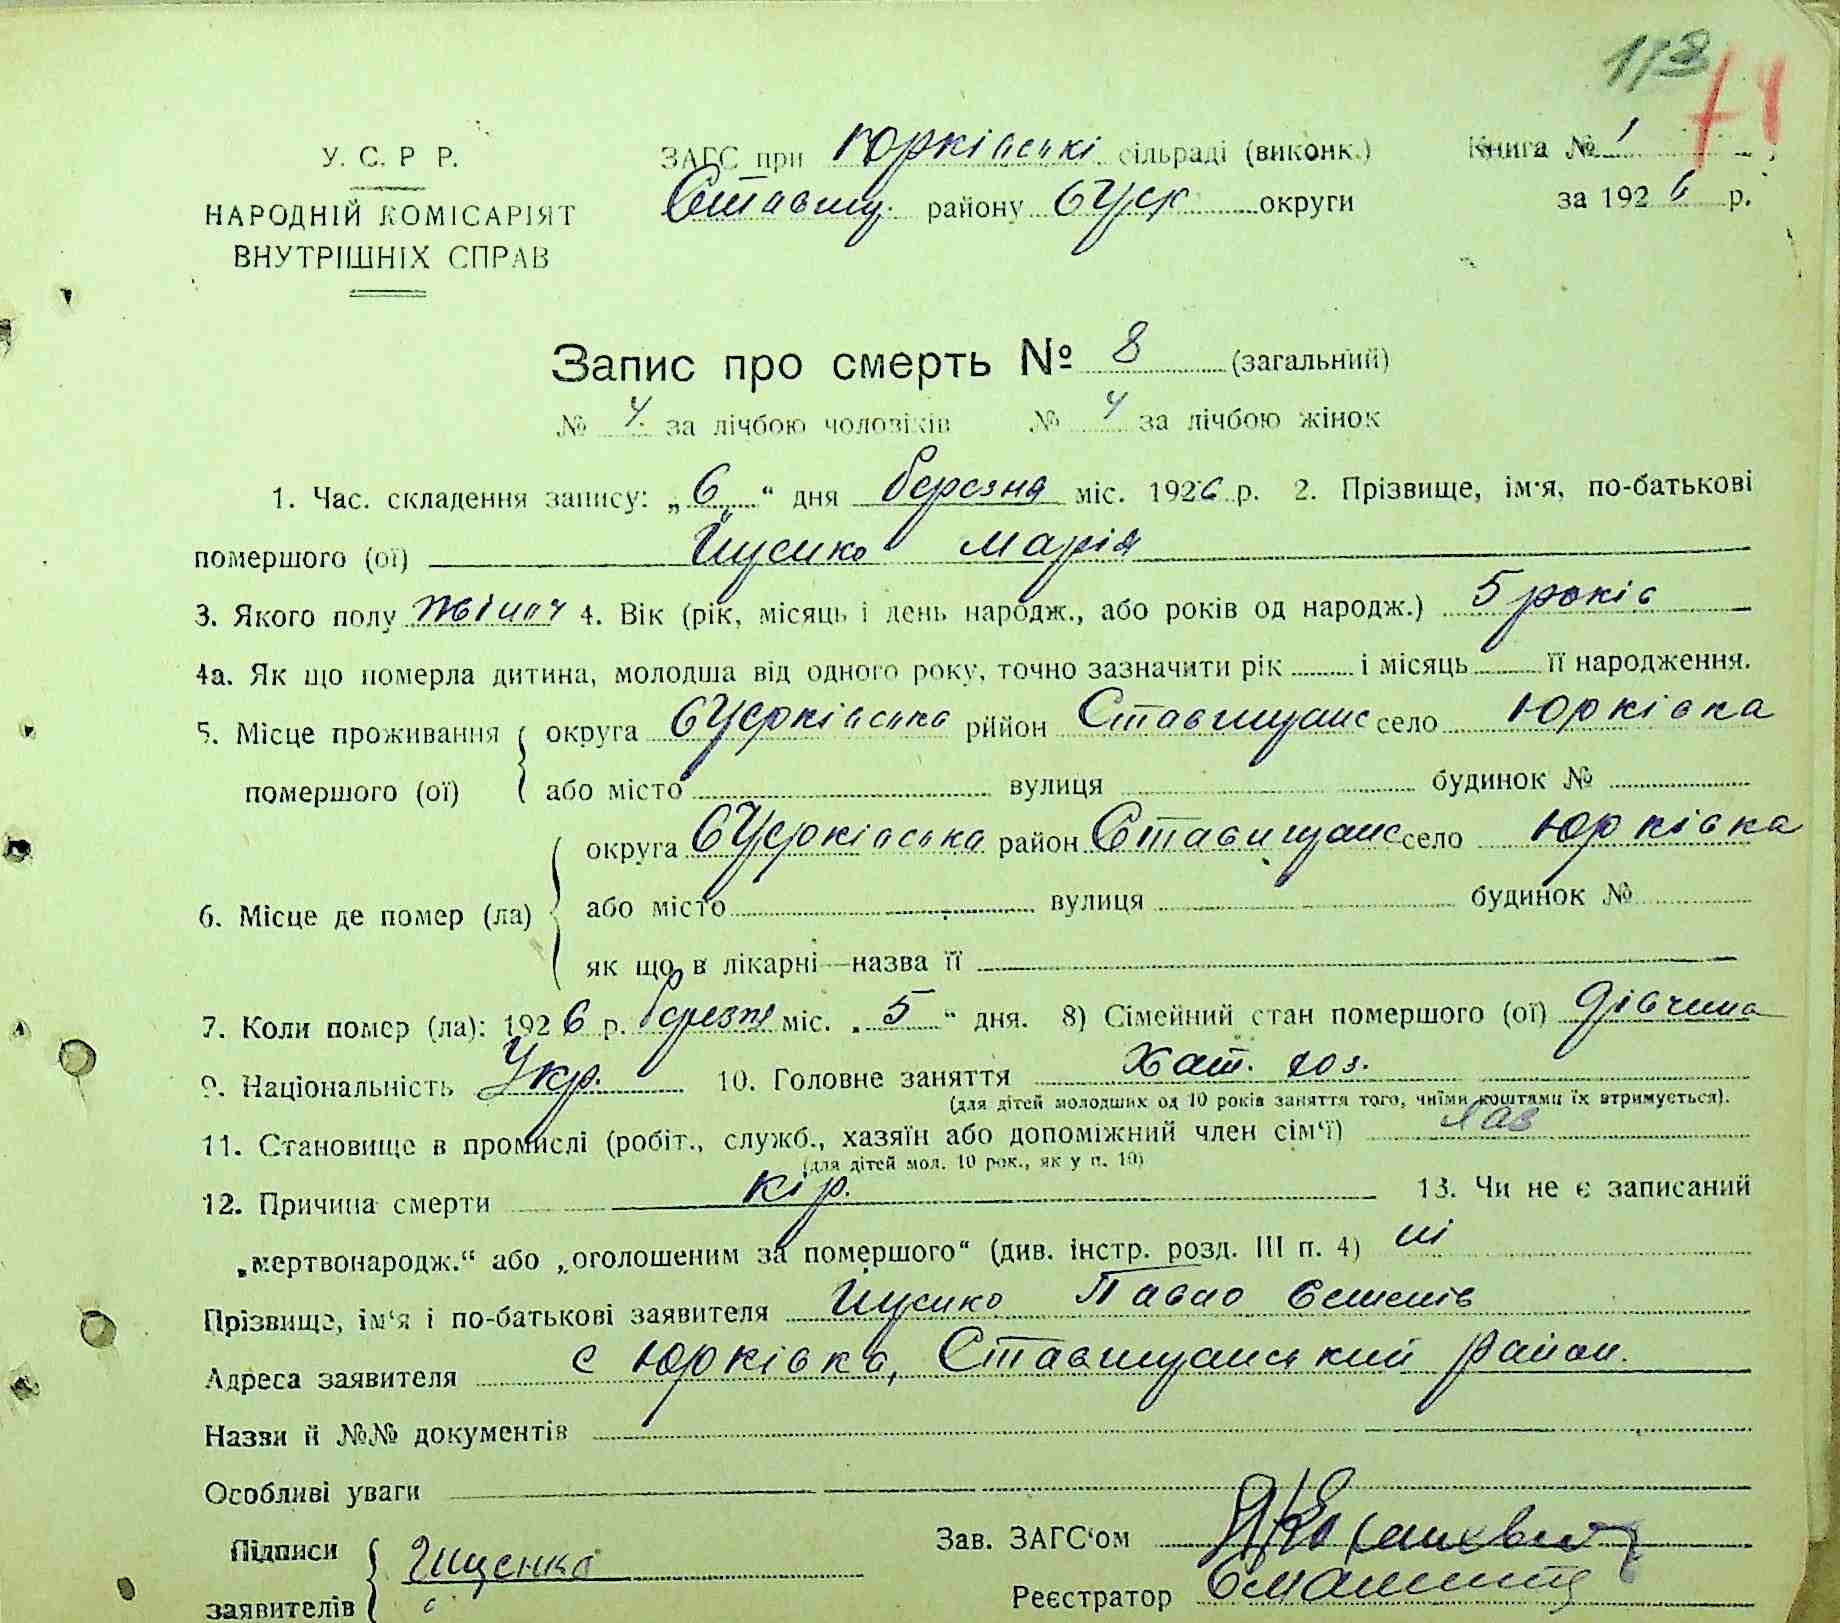 113 71
У. С. Р. Р.
НАРОДНІЙ КОМІСАРІЯТ
ВНУТРІШНІХ СПРАВ
ЗАГС при Юрківські сільраді (виконк.)
Ставищ. району БЦерк округи
Книга № 1
за 1926 р.
Запис про смерть № 8 (загальний)
№ 4 за лічбою чоловіків № 4 за лічбою жінок
1. Час. складення запису: „6“ дня березня міс. 1926 р. 2. Прізвище, ім'я, по-батькові
помершого (ої) Марія
3. Якого полу жіноч 4. Вік (рік, місяць і день народж., або років од народж.) 5 років
4а. Як що померла дитина, молодша від одного року, точно зазначити рік і місяць її народження.
5. Місце проживання помершого (ої) округа БЦерківська рийон Ставищанс село Юрківка
або місто вулиця будинок №
6. Місце де помер (ла) округа БЦерківська район Ставищанс село Юрківка
або місто вулиця будинок №
як що в лікарні—назва її
7. Коли помер (ла): 1926 р. березня міс. „5“ дня. 8) Сімейний стан помершого (ої) дівчина
9. Національність Укр. 10. Головне заняття Хат. хоз.
(для дітей молодших од 10 років заняття того, чиїми коштами їх втримується).
11. Становище в промислі (робіт., служб., хазяїн або допоміжний член сім'ї) хаз
(для дітей мол. 10 рок., як у п. 10)
12. Причина смерти кір. 13. Чи не є записаний
„мертвонародж.“ або „оголошеним за помершого“ (див. інстр. розд. III п. 4) ні
Прізвище, ім'я і по-батькові заявителя Павло
Адреса заявителя с Юрківка, Ставищанський район.
Назви й №№ документів
Особливі уваги
Підписи заявителів
Зав. ЗАГС'ом
Реєстратор